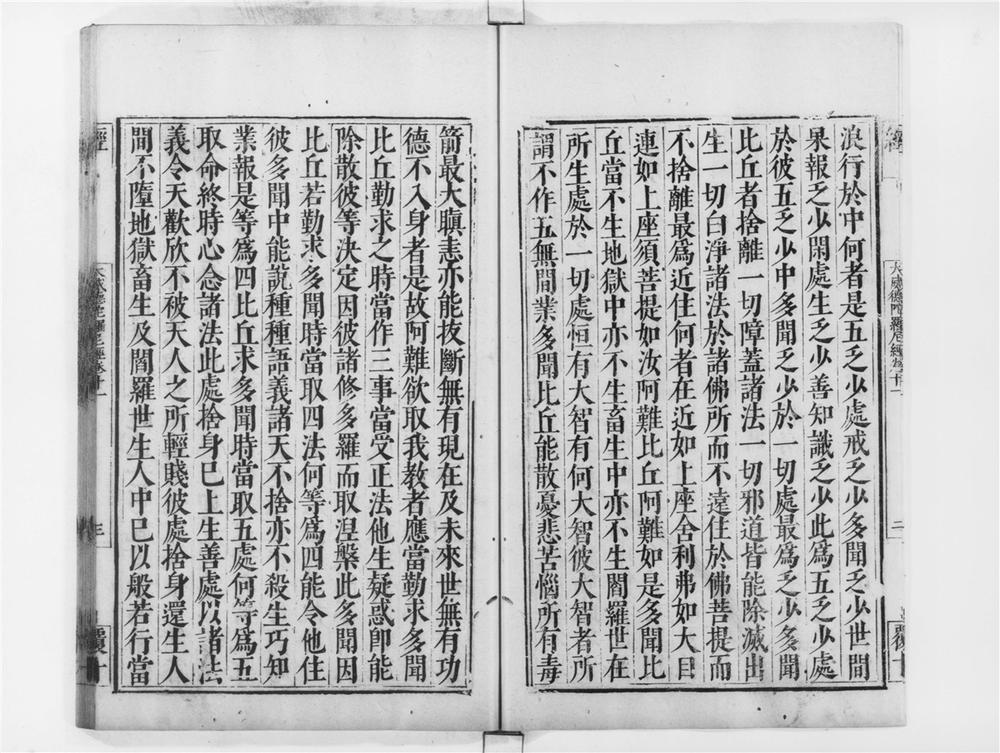 浪行於中何者是五乏少處戒乏少多聞乏少世間
果報乏少閑處生乏少善知識乏少此爲五乏少處
於彼五乏少中多聞乏少於一切處最爲乏少多聞
比丘者捨離一切障蓋諸法一切邪道皆能除滅出
生一切白淨諸法於諸佛所而不遠住於佛菩提而
不捨離最爲近住何者在近如上座舍利弗如大目
連如上座須菩提如汝阿難比丘阿難如是多聞比
丘當不生地獄中亦不生畜生中亦不生閻羅世在
所生處於一切處恒有大智有何大智彼大智者所
謂不作五無間業多聞比丘能散憂悲苦惱所有毒
箭最大瞋恚亦能拔斷無有現在及未來世無有功
德不入身者是故阿難欲取我教者應當勤求多聞
比丘勤求之時當作三事當受正法他生疑惑卽能
除散彼等決定因彼諸修多羅而取涅槃此多聞因
比丘若勤求多聞時當取四法何等爲四能令他住
彼多聞中能說種種語義諸天不捨亦不殺生巧知
業報是等爲四比丘求多聞時當取五處何等爲五
取命終時心念諸法此處捨身已上生善處以諸法
義令天歡欣不被天人之所輕賤彼處捨身還生人
間不墮地獄畜生及閻羅世生人中已以般若行當
大威德陀羅尼經卷十一
二
大威德陀羅尼經卷十一
三